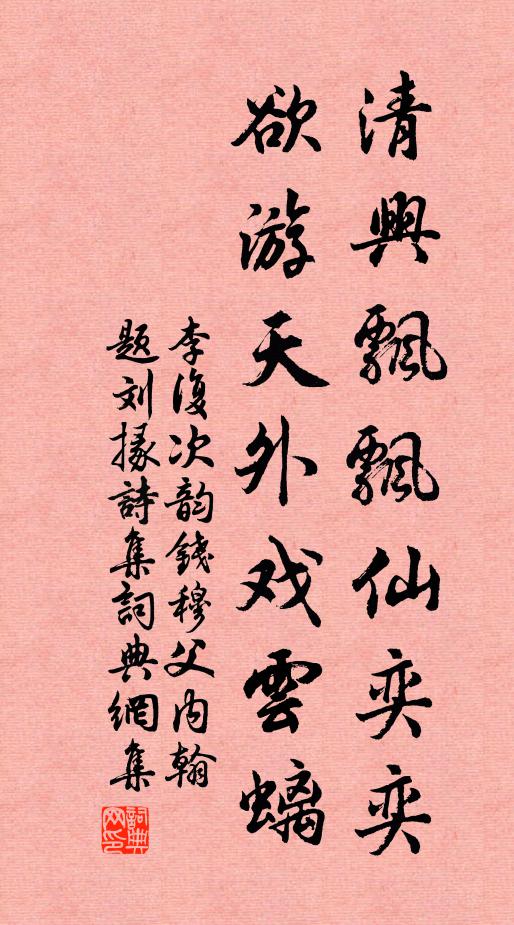 清興飄飄仙奕奕
欲游天外戏雲螭
李復次韵錢穆父内翰
题刘掾詩集詞典網集
詞典网印